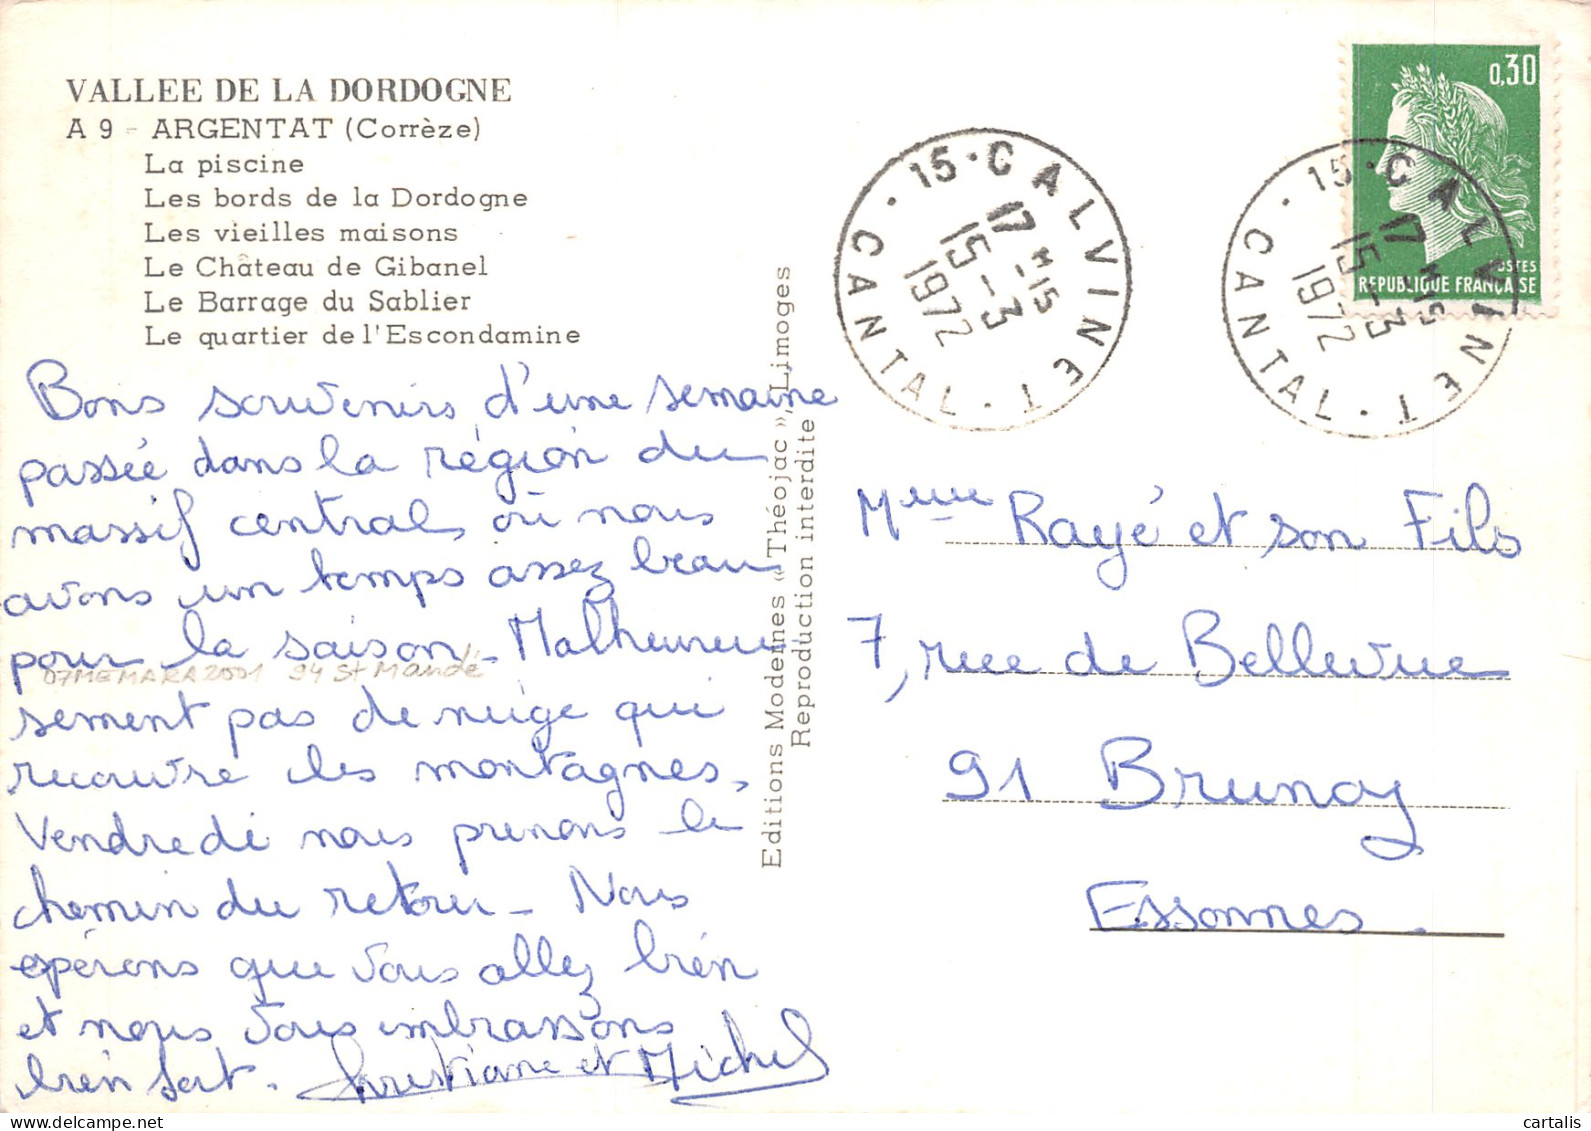 VALLEE DE LA DORDOGNE
A 9 - ARGENTAT (Corrèze)
La piscine
Les bords de la Dordogne
Les vieilles maisons
Le Château de Gibanel
Le Barrage du Sablier
Le quartier de l'Escondamine
Bons souvenirs d'une semaine
passée dans la région du
massif central où nous
avons un temps assez beau
pour la saison - Malheureu
sement pas de neige qui
recouvre les montagnes.
Vendredi nous prenons le
chemin du retour - Nous
espérons que vous allez bien
et nous vous embrassons
bien fort. Christiane et Michel
07MEMARA2001 94 St Mandé
Editions Modernes « Théojac », Limoges
Reproduction interdite
15 · CALVINET · CANTAL ·
17 H 15
15 - 3
1972
15 · CALVINET · CANTAL ·
17 H 15
15 - 3
1972
0,30
POSTES
REPUBLIQUE FRANÇAISE
Mme Rayé et son Fils
7, rue de Bellevue
91 Brunoy
Essonnes.
cartalis